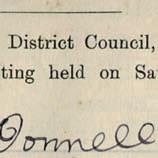 District Council,
ting held on Sa
Donnell